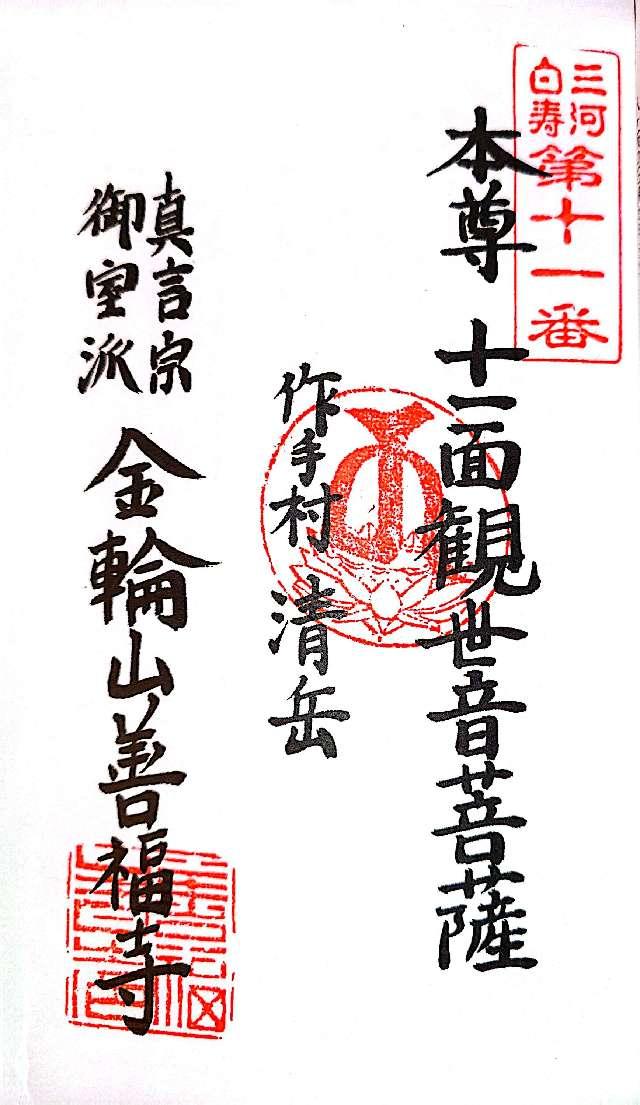 三河
白寿
第十一番
本尊 十一面観世音菩薩
作手村 清岳
真言宗
御室派
金輪山善福寺